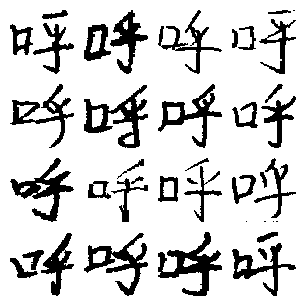 呼呼呼呼
呼呼呼呼
呼呼呼呼
呼呼呼呼